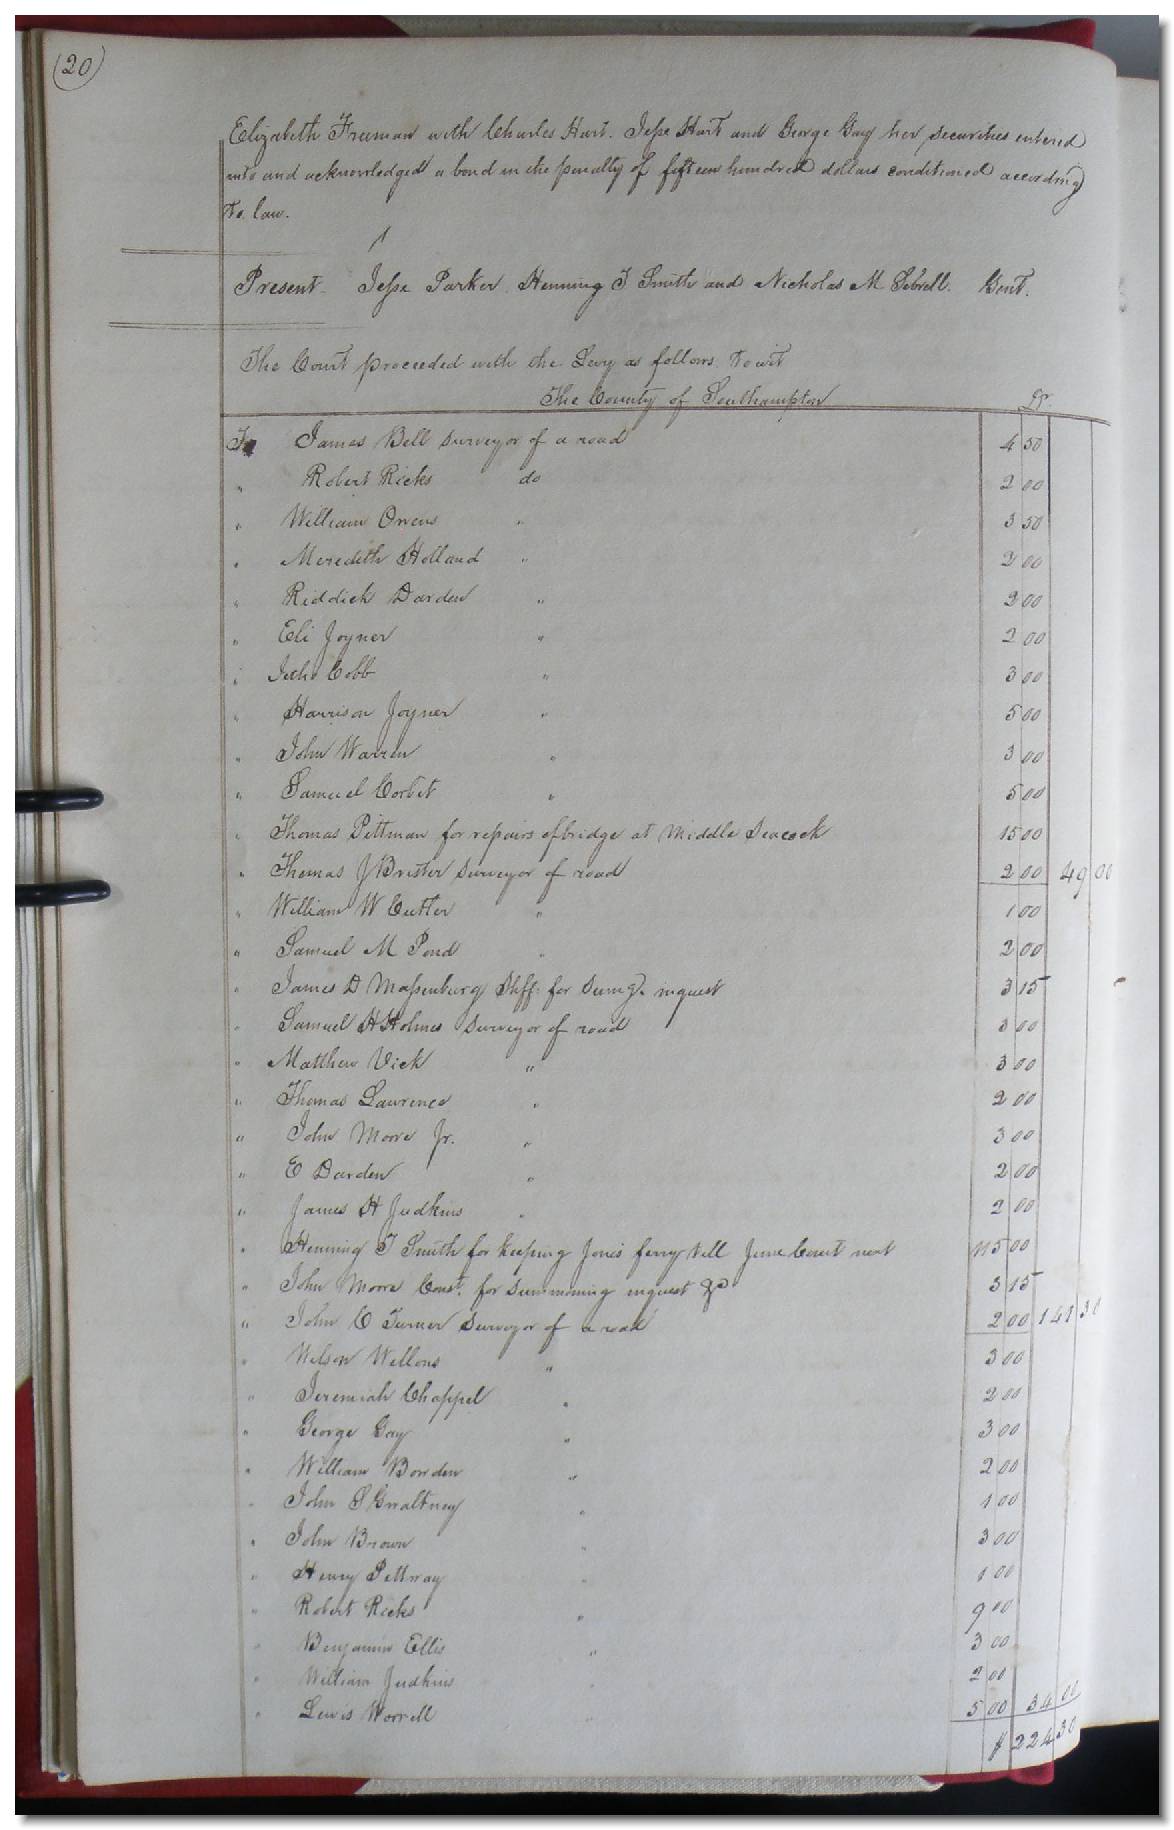 (20)
Elizabeth Freeman with Charles Hart. Jesse Hart and George Gay her securities entered
into and acknowledged a bond in the penalty of fifteen hundred dollars conditioned according
to law.
Present. Jesse Parker. Henning T Smith and Nicholas M Sebrell. Gent.
The Court proceeded with the Levy as follows. Towit
The County of Southampton Dr.
To James Bell surveyor of a road 4 50
" Robert Ricks do 2 00
" William Owens " 3 50
" Meredith Holland " 2 00
" Riddick Darden " 2 00
" Eli Joyner " 2 00
" Cobb " 3 00
" Harrison Joyner " 5 00
" John Warren " 3 00
" Samuel Corbit " 5 00
" Thomas Pittman for repairs of bridge at Middle Seacock 15 00
" Thomas J Brister surveyor of road 2 00 49 00
" William W Cutler " 1 00
" Samuel M Pond " 2 00
" James D Massenburg Shff. for sumg. inquest 3 15
" Samuel H Holmes surveyor of road 3 00
" Matthew Vick " 3 00
" Thomas Lawrence " 2 00
" John Moore Jr. " 3 00
" E Darden " 2 00
" James H Judkins " 2 00
" Henning T Smith for keeping Jones ferry till June Court next 115 00
" John Moore Const. for summoning inquest &c 3 15
" John C Turner surveyor of a road 2 00 141 30
" Wilson Wellons " 3 00
" Jeremiah Chappel " 2 00
" George Gay " 3 00
" William Bowden " 2 00
" John S Gwaltney " 1 00
" John Brown " 3 00
" Henry Pettway " 1 00
" Robert Ricks " 9 00
" Benjamin Ellis " 3 00
" William Judkins " 2 00
" Lewis Worrell " 5 00 34 00
$ 224 30